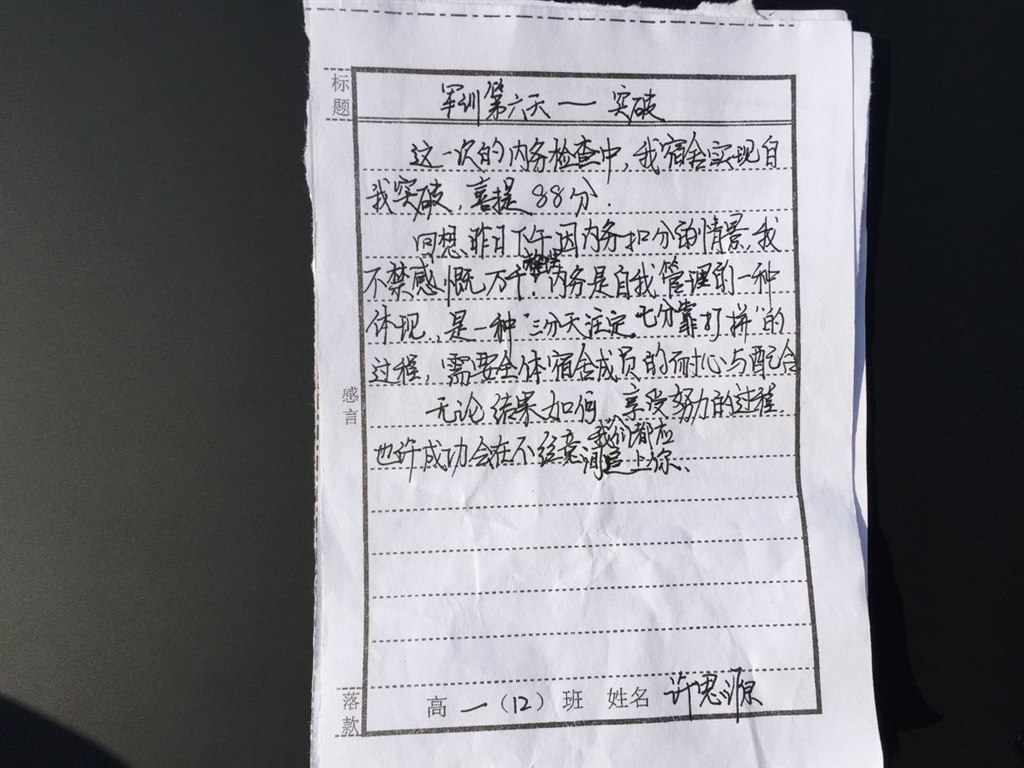 标题
军训第六天 — 突破
这一次的内务检查中，我宿舍实现自
我突破，喜提88分.
回想昨日下午因内务扣分的情景，我
不禁感慨万千.整理内务是自我管理的一种
体现，是一种“三分天注定，七分靠打拼”的
过程，需要全体宿舍成员的耐心与配合
感言
无论结果如何，我们都应享受努力的过程，
也许成功会在不经意间追上你、
落款
高一（12）班 姓名 许思源